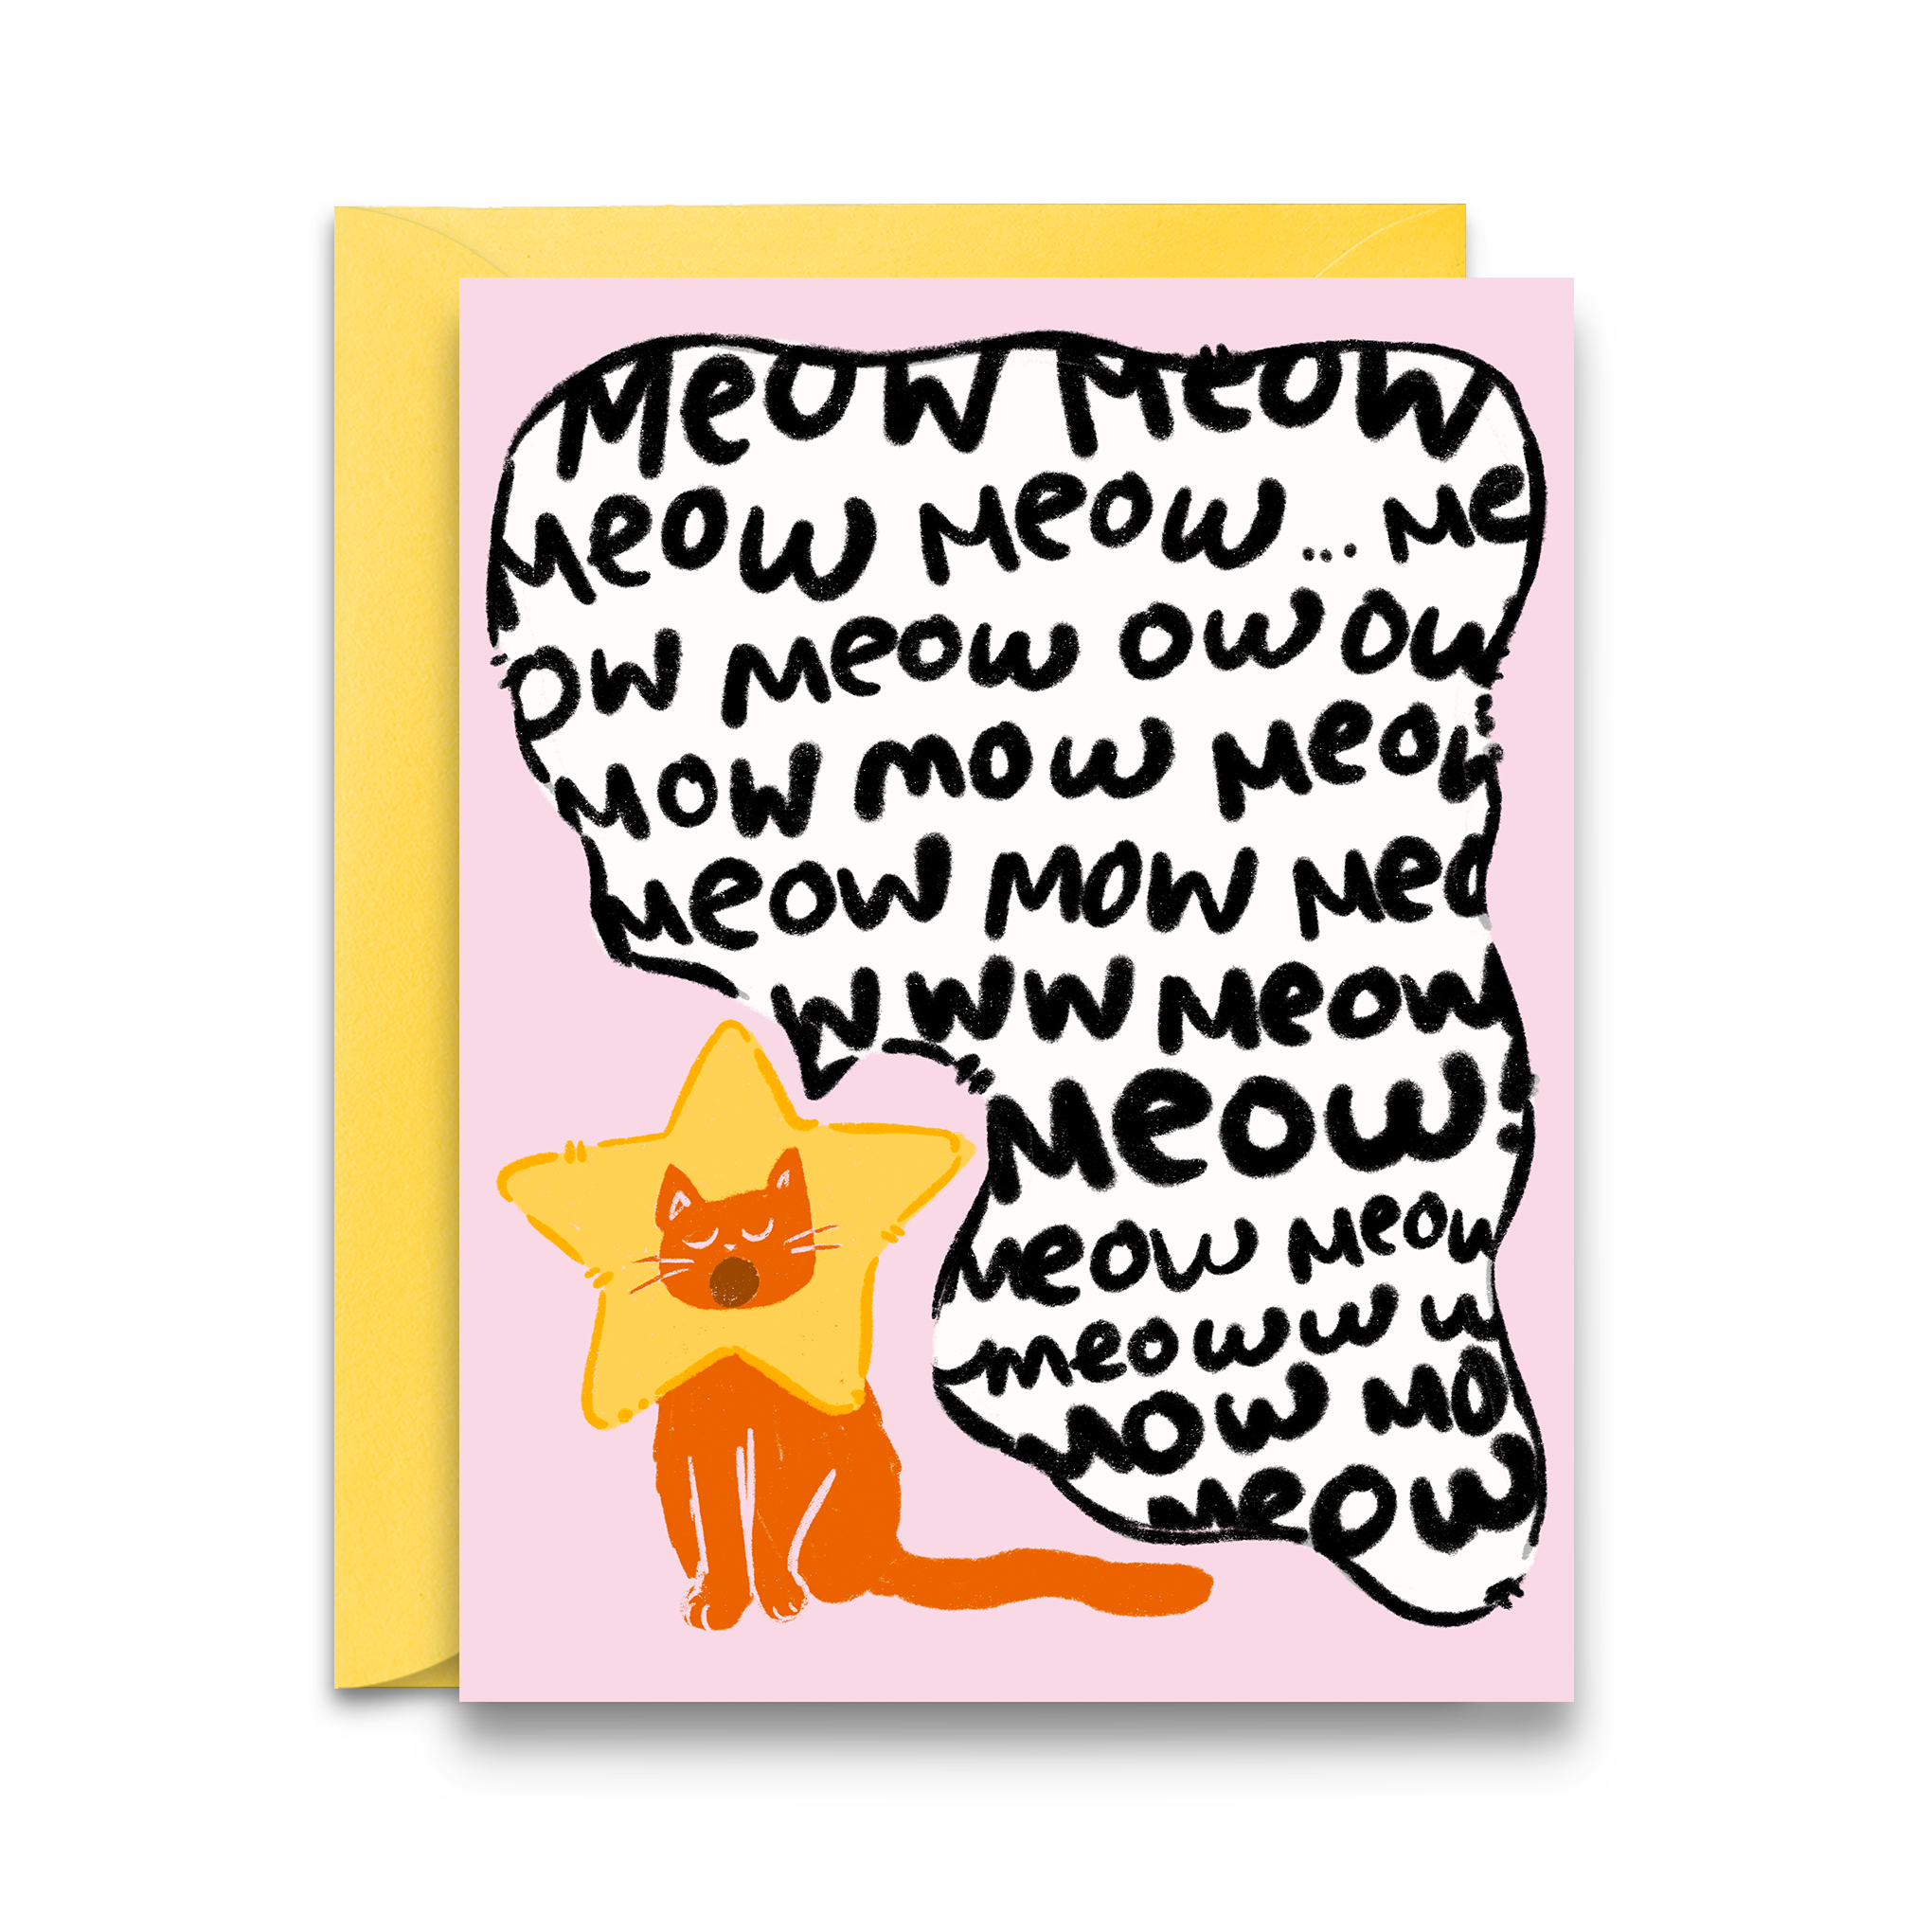 MEOW MEOW
MEOW MEOW... ME
OW MEOW OW OW
MOW MOW MEOW
MEOW MOW MEO
W WW MEOW
MEOW
MEOW MEOW
MEOWW W
MOW MO
MEOW